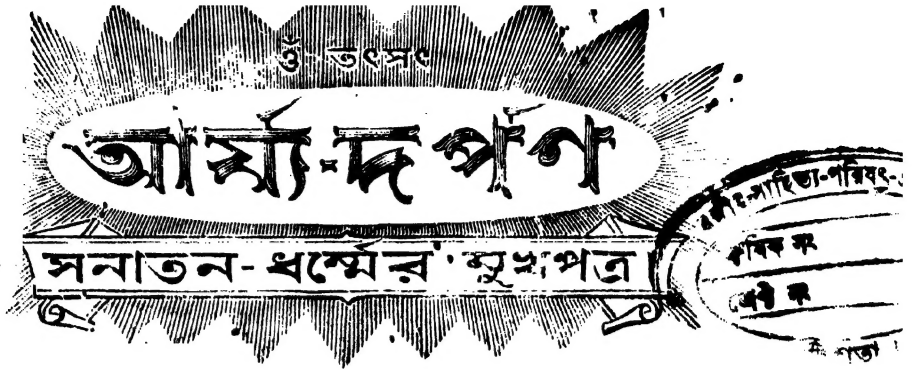 ওঁ তৎসৎ
আর্য্য-দর্পণ
সনাতন-ধর্ম্মের মুখপত্র
সাহিত্য-পরিষৎ
সং
সং